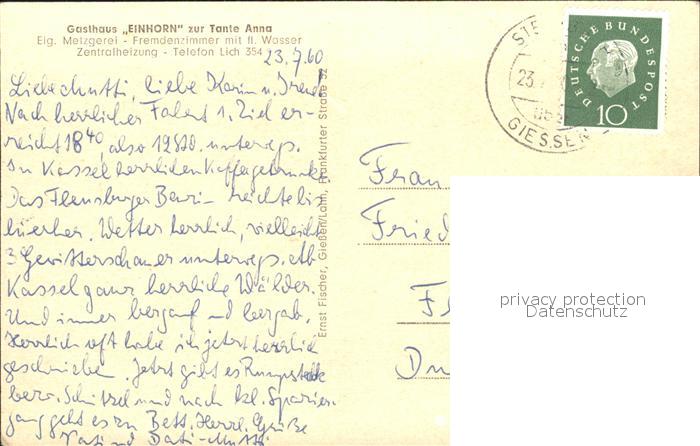 Gasthaus „EINHORN" zur Tante Anna
Eig. Metzgerei - Fremdenzimmer mit fl. Wasser
Zentralheizung - Telefon Lich 354
23.7.60
Liebe Mutti, liebe Karin u.
Nach herrlicher Fahrt 1. Ziel er-
reicht 18⁴⁰, also 12 Std. unterwegs.
In Kassel herrlichen Kaffee
Das Flensburger Benzin reichte bis
hierher. Wetter herrlich, vielleicht
3 Gewitterschauer unterwegs. Ab
Kassel ganz herrliche Wälder.
Und immer bergauf und bergab.
Herrlich oft habe ich jetzt herrlich
geschrieben. Jetzt gibt es Rumpsteak
bezw. Schnitzel und nach kl. Spazier-
gang geht es zu Bett. Herzl. Grüße
Vati und Mutti
Ernst Fischer, Gießen/Lahn, Frankfurter Straße 52
DEUTSCHE BUNDESPOST
10
23.
GIESSEN
Frau
Fried
Fl
privacy protection
Datenschutz